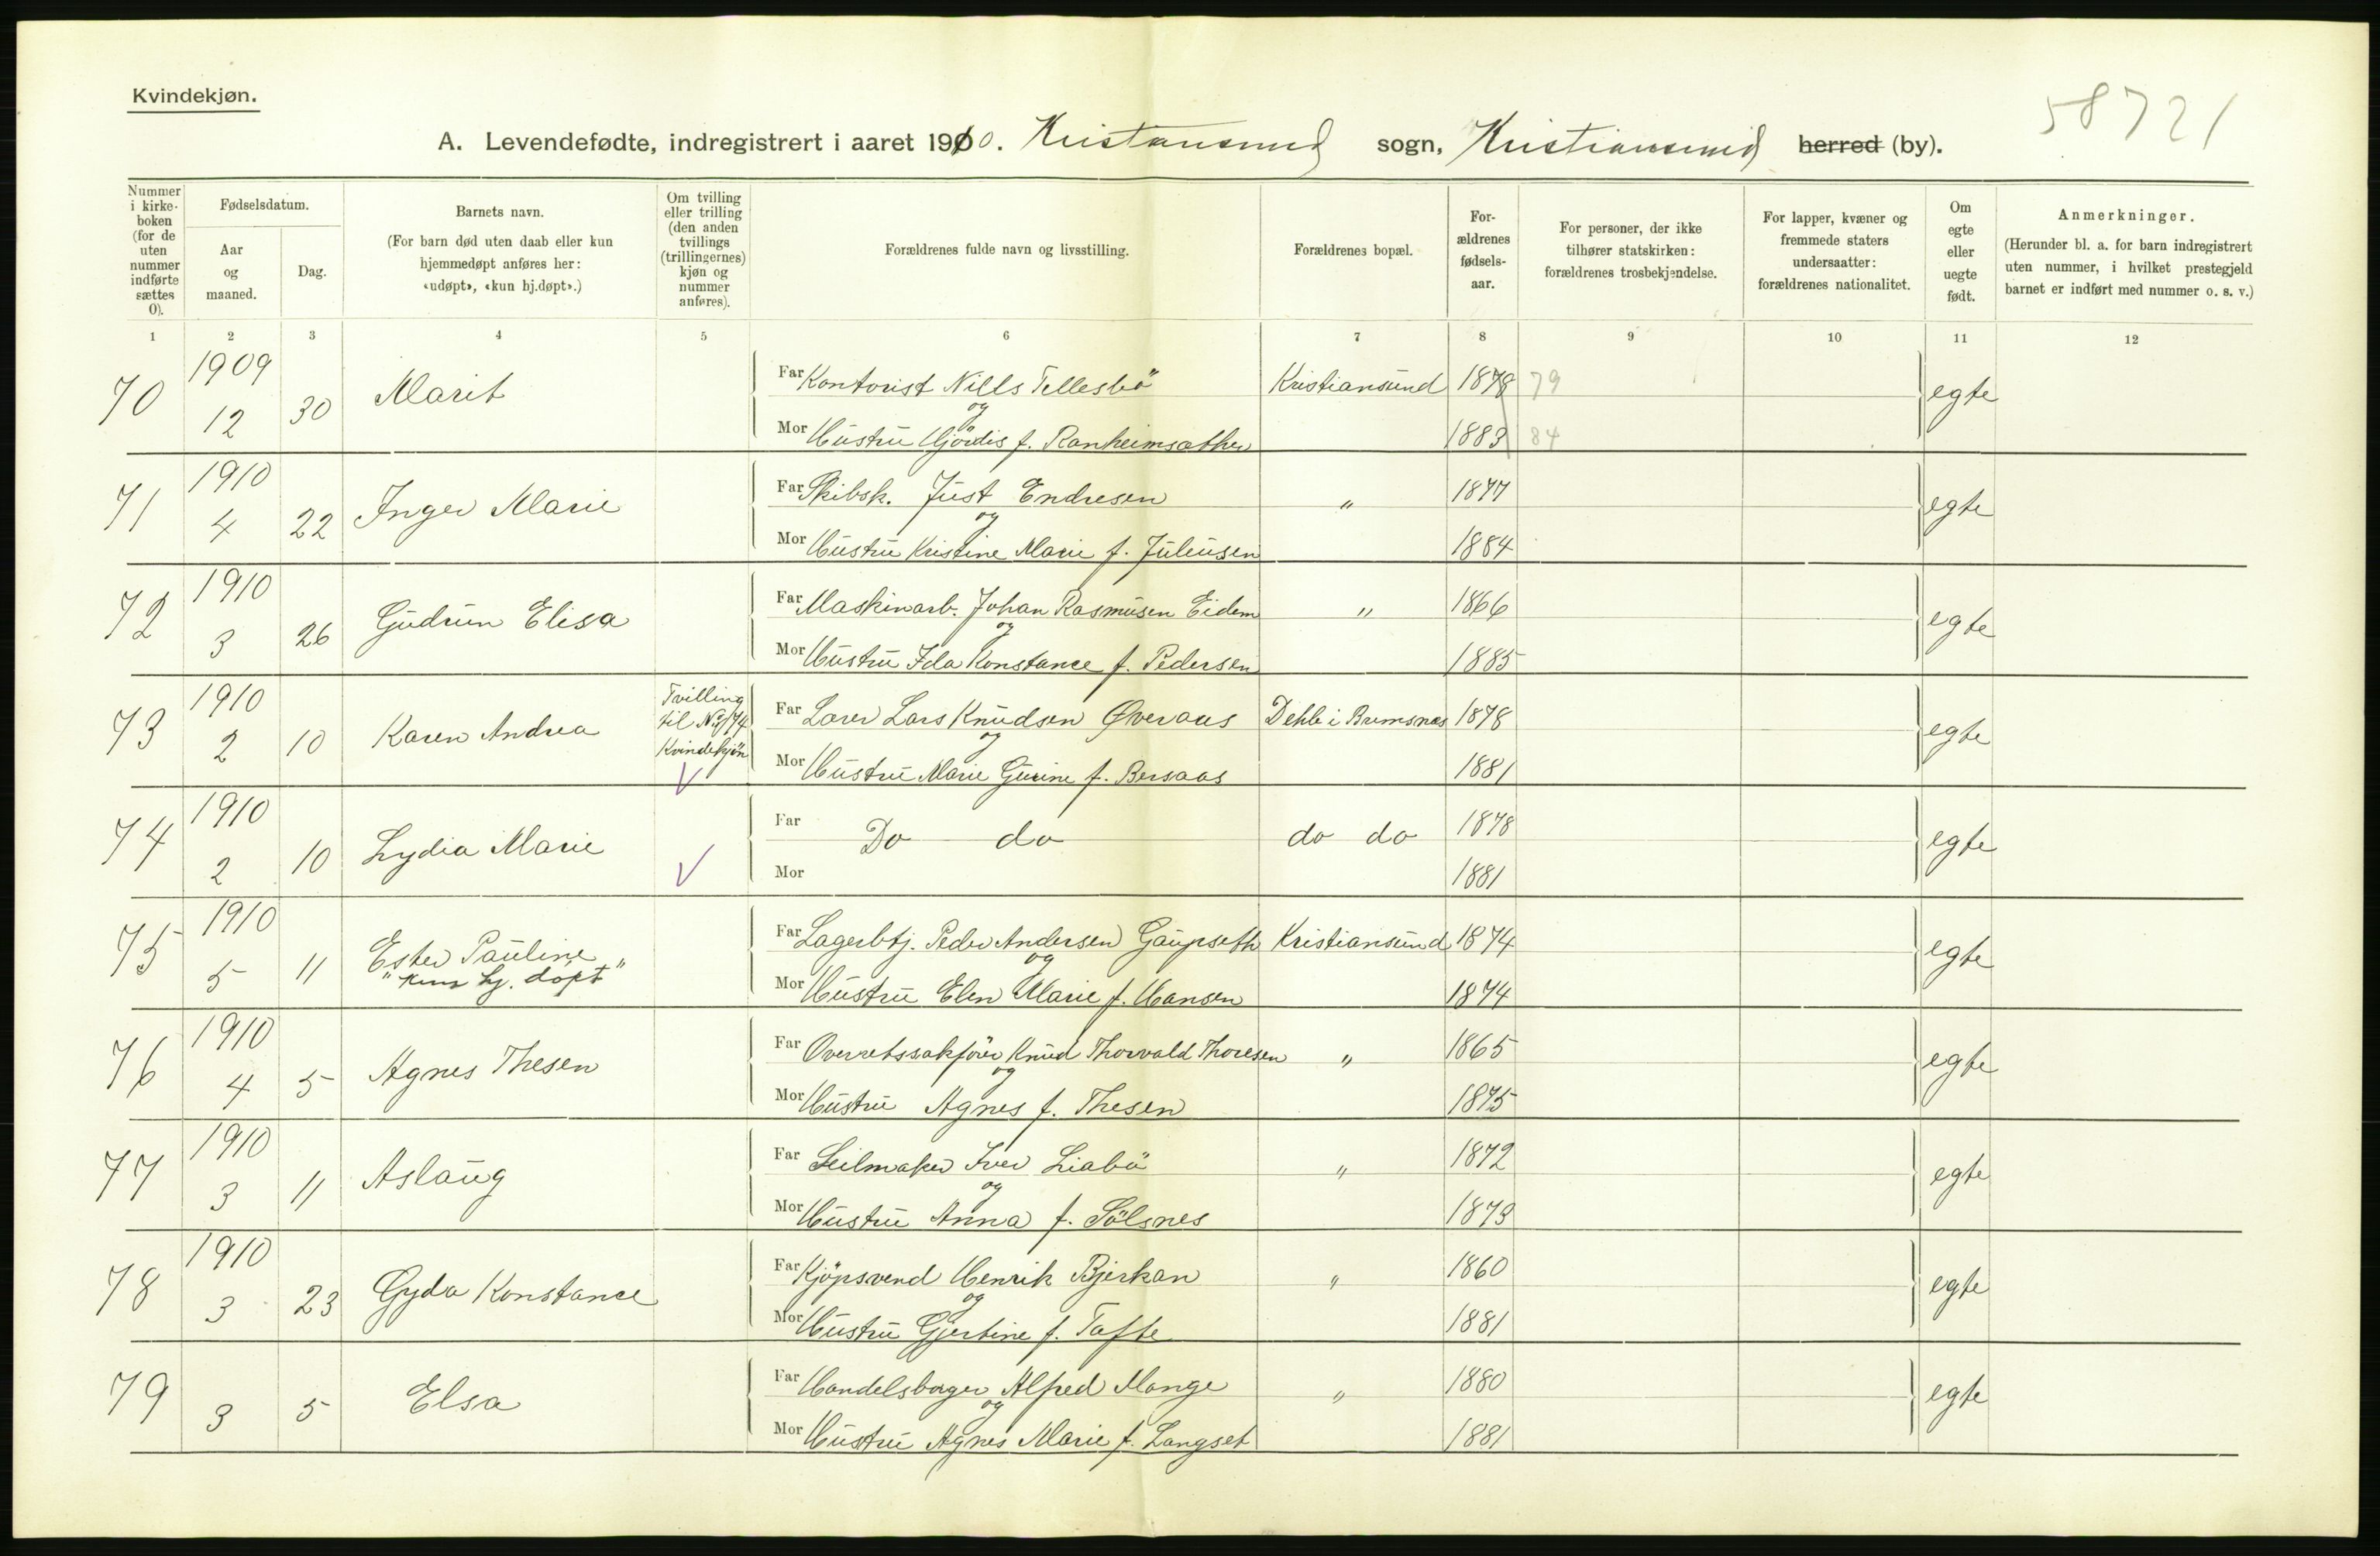 Kvindekjøn.
58721
A. Levendefødte, indregistrert i aaret 1910. Kristiansund sogn, Kristiansund herred (by).
Nummer i kirke-boken (for de uten nummer indførte sættes 0).
Fødselsdatum.
Aar og maaned.
Dag.
Barnets navn.
(For barn død uten daab eller kun hjemmedøpt anføres her: «udøpt», «kun hj.døpt».)
Om tvilling eller trilling (den anden tvillings (trillingernes) kjøn og nummer anføres).
Forældrenes fulde navn og livsstilling.
Forældrenes bopæl.
For-ældrenes fødsels-aar.
For personer, der ikke tilhører statskirken: forældrenes trosbekjendelse.
For lapper, kvæner og fremmede staters undersaatter: forældrenes nationalitet.
Om egte eller uegte født.
Anmerkninger.
(Herunder bl. a. for barn indregistrert uten nummer, i hvilket prestegjeld barnet er indført med nummer o. s. v.)
1 2 3 4 5 6 7 8 9 10 11 12
70 1909 12 30 Marit
Far Kontorist Nills Tellesbö Kristiansund 1878 79
og
Mor Hustru Hjördis f. Ranheimsæther 1883 84
egte
71 1910 4 22 Inger Marie
Far Skibsk. Just Endresen " 1877
og
Mor Hustru Kristine Marie f. Juliusen 1884
egte
72 1910 3 26 Gudrun Elisa
Far Maskinarb. Johan Rasmusen Eidem " 1866
og
Mor Hustru Ida Konstance f. Pedersen 1885
egte
73 1910 2 10 Karen Andrea
Tvilling til No 74 Kvindekjön
Far Lærer Lars Knudsen Øveraas Dehle i Bremsnes 1878
og
Mor Hustru Marie Gurine f. Bersaas 1881
egte
74 1910 2 10 Lydia Marie
Far Do do do do 1878
Mor 1881
egte
75 1910 5 11 Ester Pauline
"kun hj. döpt"
Far Lagerbtj. Peder Andersen Gaupseth Kristiansund 1874
og
Mor Hustru Elen Marie f. Hansen 1874
egte
76 1910 4 5 Agnes Thesen
Far Overretssakförer Knud Thorvald Thoresen " 1865
og
Mor Hustru Agnes f. Thesen 1875
egte
77 1910 3 11 Aslaug
Far Seilmaker Iver Liabö " 1872
og
Mor Hustru Anna f. Sölsnes 1873
egte
78 1910 3 23 Gyda Konstance
Far Kjöpsvend Henrik Bjerkan " 1860
og
Mor Hustru Gjertine f. Tafte 1881
egte
79 3 5 Elsa
Far Handelsborger Alfred Mange " 1880
og
Mor Hustru Agnes Marie f. Langset 1881
egte